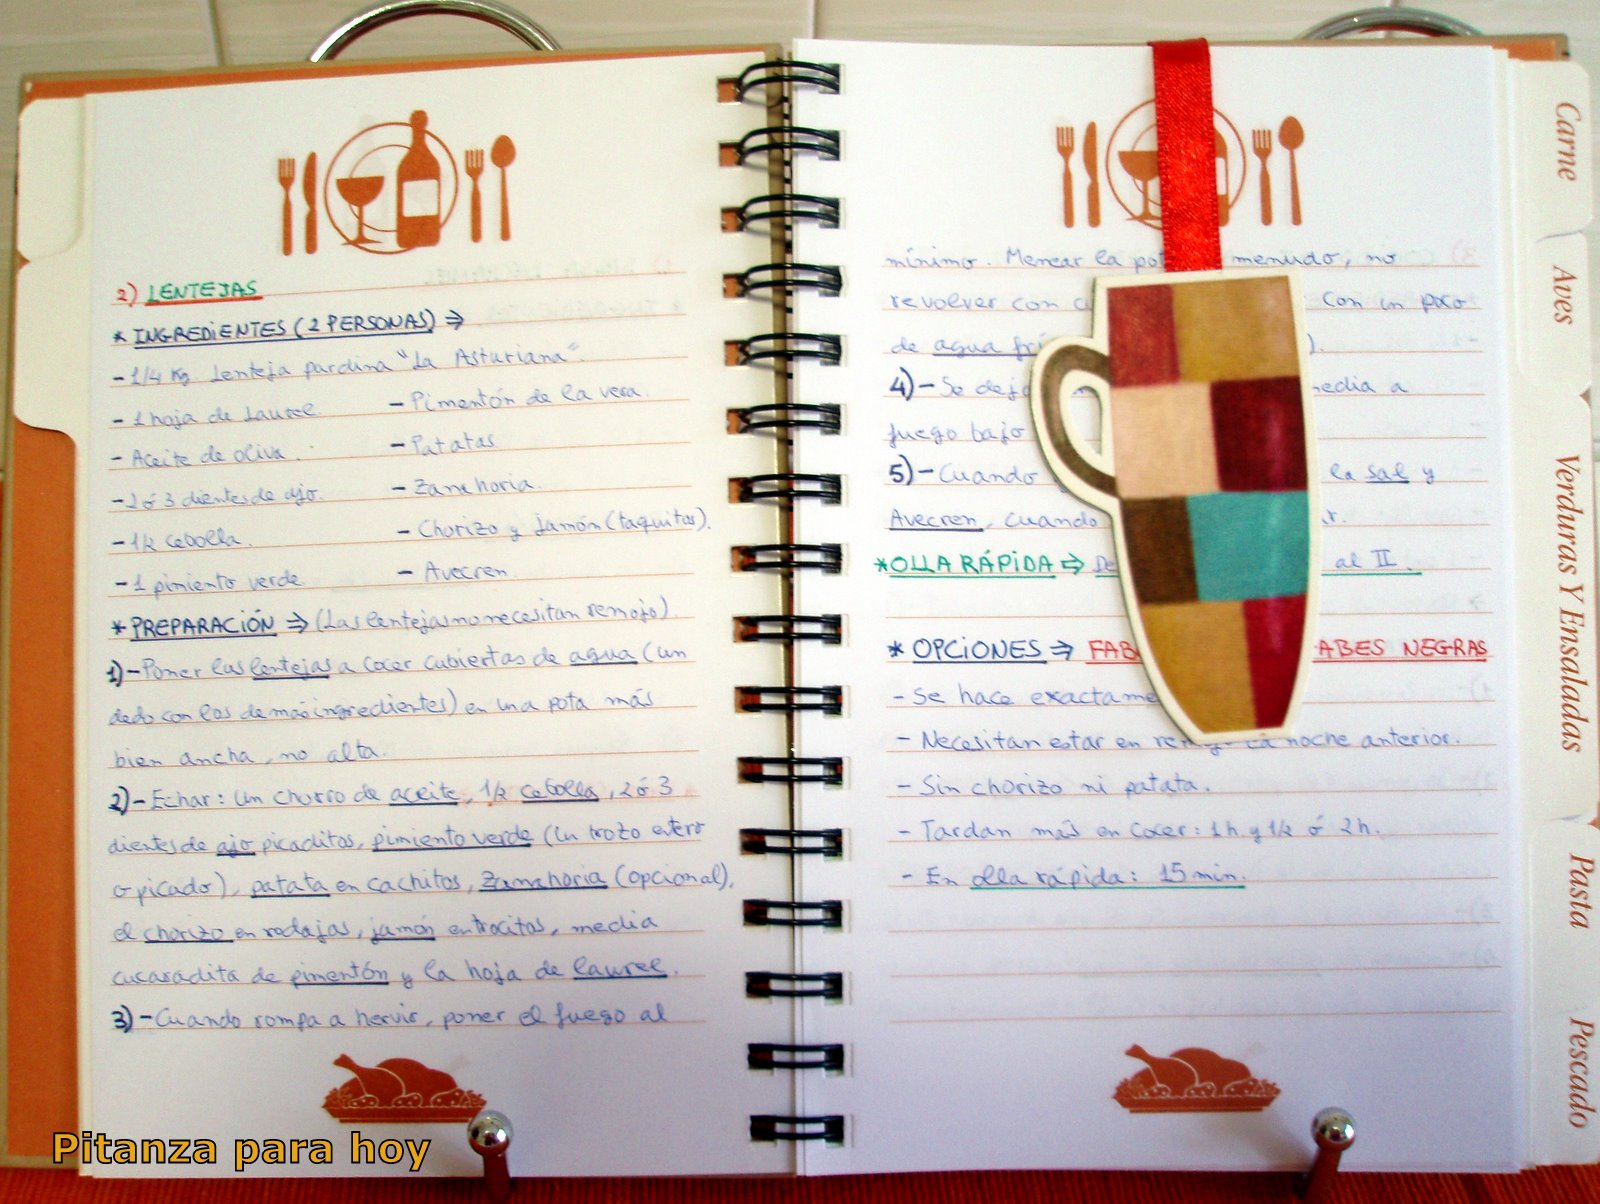 2) LENTEJAS
* INGREDIENTES (2 PERSONAS) ⇒
- 1/4 Kg Lenteja pardina "La Asturiana".
- 1 hoja de Laurel. - Pimentón de la vera.
- Aceite de oliva. - Patatas
- 2 ó 3 dientes de ajo. - Zanahoria.
- 1/2 cebolla. - Chorizo y jamón (taquitos).
- 1 pimiento verde - Avecren.
* PREPARACIÓN ⇒ (Las lentejas no necesitan remojo).
1)- Poner las lentejas a cocer cubiertas de agua (un
dedo con los demás ingredientes) en una pota más
bien ancha, no alta.
2)- Echar: Un chorro de aceite, 1/2 cebolla, 2 ó 3
dientes de ajo picaditos, pimiento verde (Un trozo entero
o picado), patata en cachitos, zanahoria (opcional),
el chorizo en rodajas, jamón en trocitos, media
cucaradita de pimentón y la hoja de laurel.
3)- Cuando rompa a hervir, poner el fuego al
mínimo. Menear la menudo, no
revolver con Con un poco
de agua ).
4)- Se a
fuego bajo
5)- Cuando la sal y
Avecren, cuando
* OLLA RÁPIDA ⇒ al II.
* OPCIONES ⇒ NEGRAS
- Se hace
- Necesitan estar en la noche anterior.
- Sin chorizo ni patata.
- Tardan más en cocer: 1h. y 1/2 ó 2h.
- En olla rápida: 15 min.
Carne
Aves
Verduras Y Ensaladas
Pasta
Pescado
Pitanza para hoy